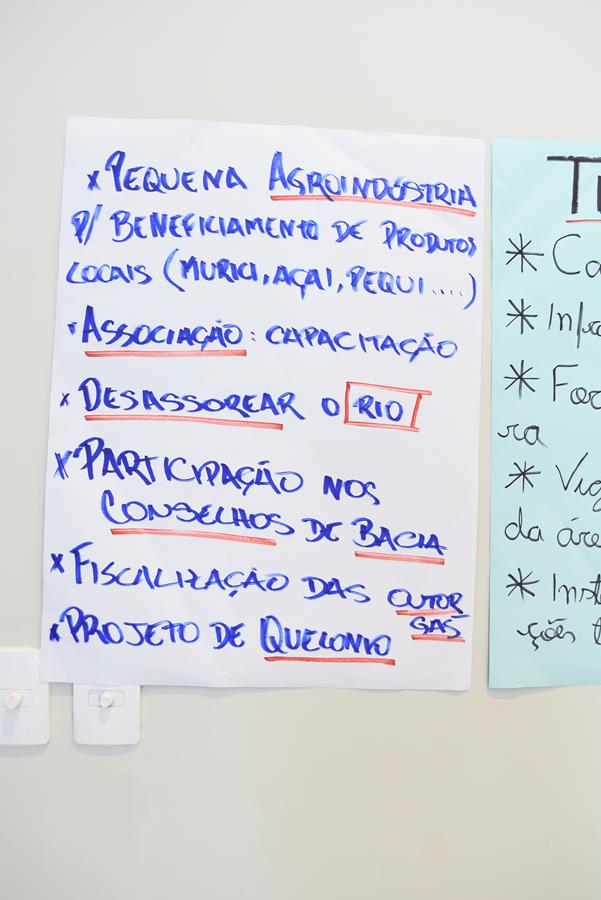 x PEQUENA AGROINDÚSTRIA
P/ BENEFICIAMENTO DE PRODUTOS
LOCAIS (MURICI, AÇAÍ, PEQUI....)
x ASSOCIAÇÃO: CAPACITAÇÃO
x DESASSOREAR O RIO
x PARTICIPAÇÃO NOS
CONSELHOS DE BACIA
x FISCALIZAÇÃO DAS OUTOR
GAS
x PROJETO DE QUELONIO
T
* Ca
* Infra
* For
ra
* Vig
da áre
* Inst
ções t